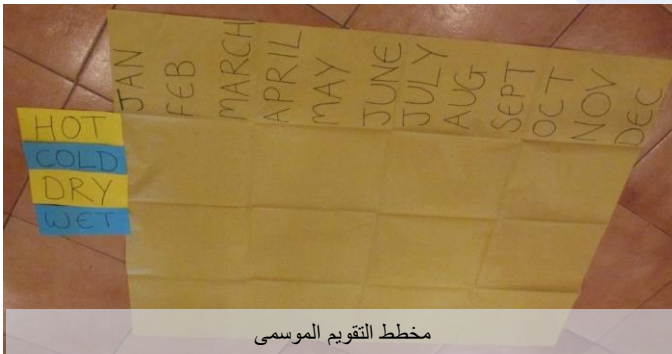 JAN FEB MARCH APRIL MAY JUNE JULY AUG SEPT OCT NOV DEC
HOT
COLD
DRY
WET
مخطط التقويم الموسمى